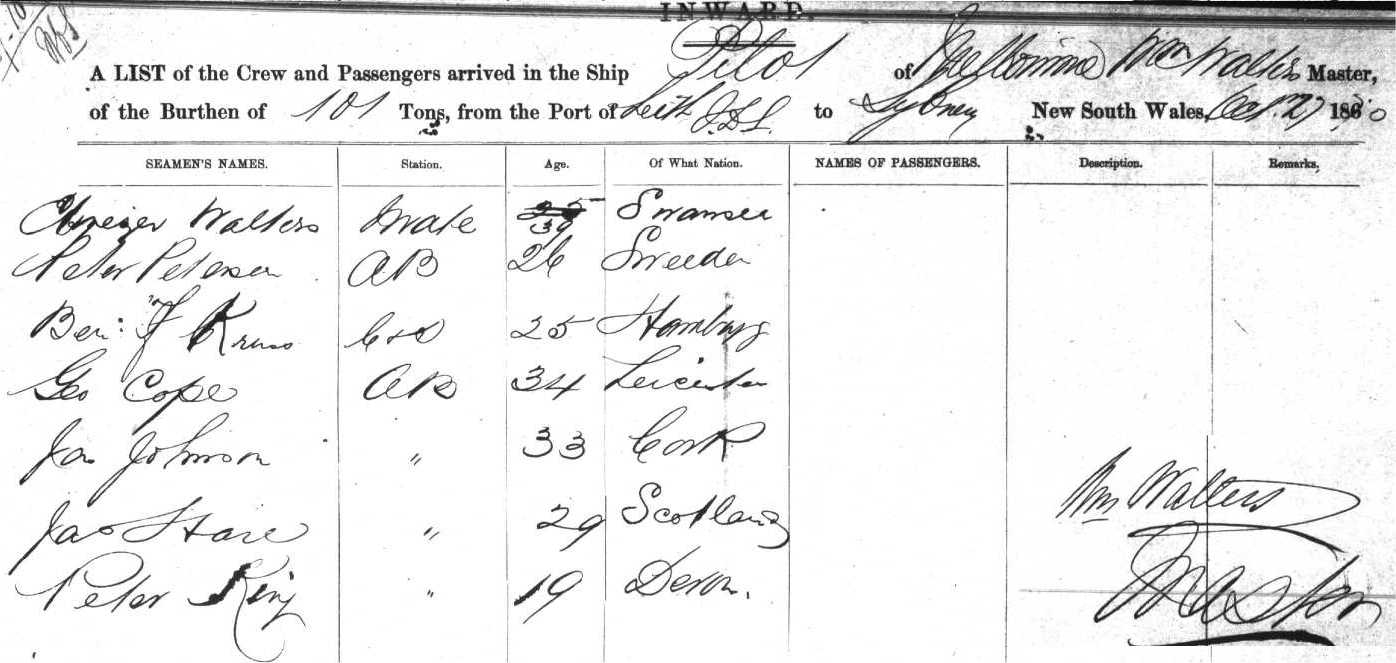 INWARD.
A LIST of the Crew and Passengers arrived in the Ship Pilot of Melbourne Wm Walters Master,
of the Burthen of 101 Tons, from the Port of to Sydney New South Wales, 27 1860
SEAMEN'S NAMES. Station. Age. Of What Nation. NAMES OF PASSENGERS. Description. Remarks.
Walters Mate 25 39 Swansea
Peter Petersen AB 26 Sweeden
Ben: F Kruss C&S 25 Hamburg
Geo Cope AB 34 Leicester
Jas Johnson " 33 Cork
Jas Hare " 29 Scotland
Peter King " 19 Devon.
Wm Walters
Master